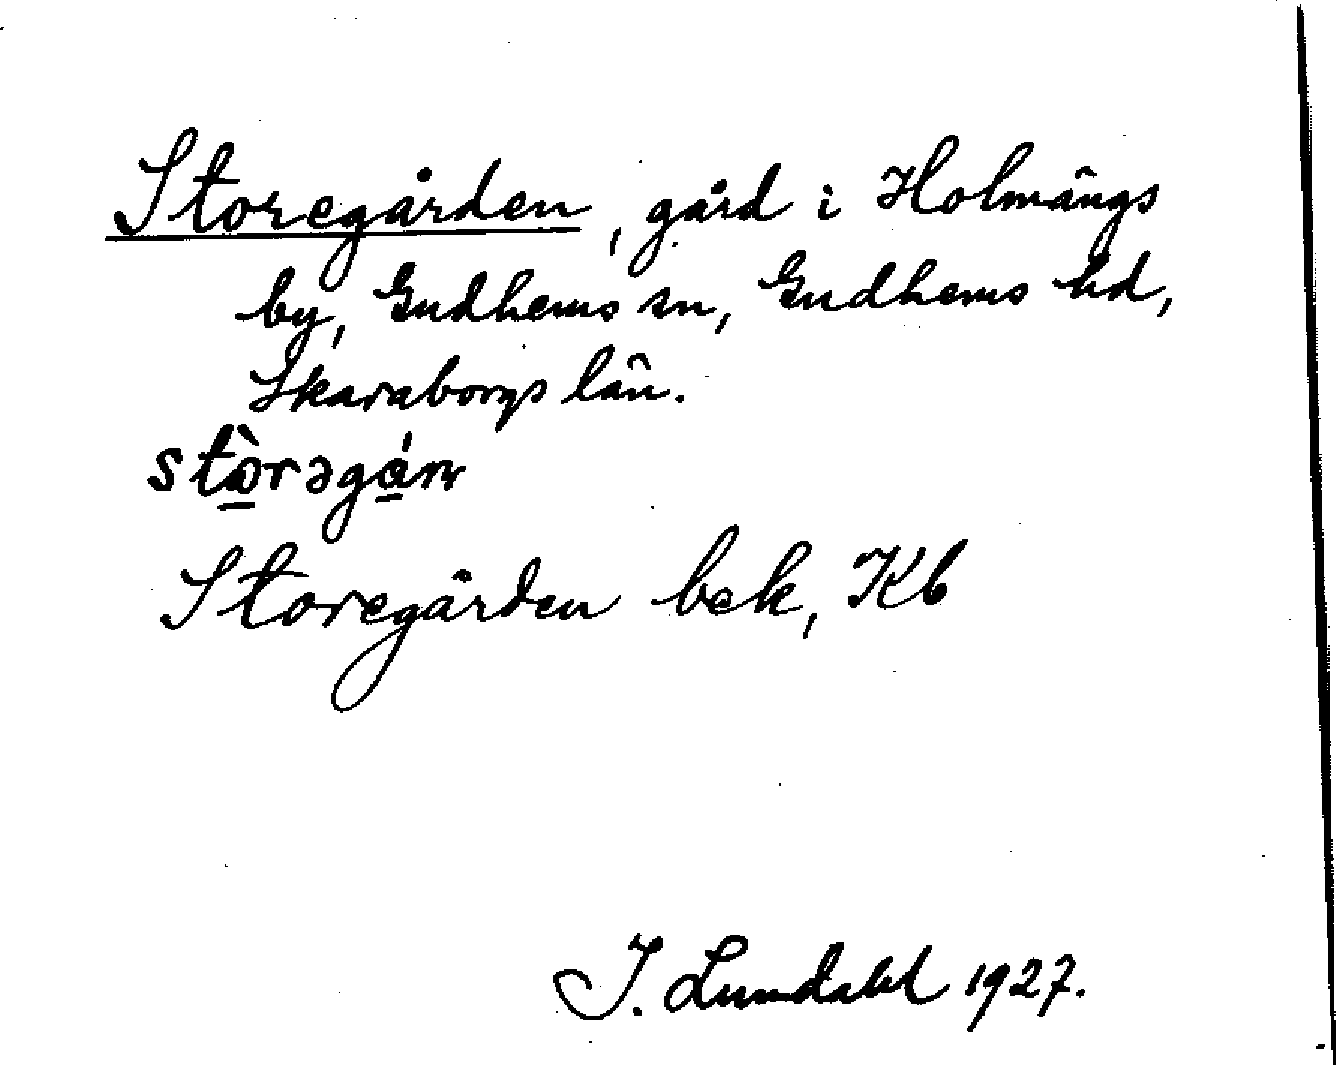 Storegården, gård i Holmängs
by, Gudhems sn, Gudhems hd,
Skaraborgs län.
stòrəgán
Storegården bek, Kb
J. Lundahl 1927.